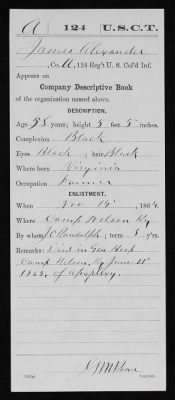 A | 124 | U.S.C.T.
James Alexander
Co. A, 124 Reg't U. S. Col'd Inf.
Appears on
Company Descriptive Book
of the organization named above.
DESCRIPTION.
Age 38 years; height 5 feet 5 inches.
Complexion Black
Eyes Black; hair Black
Where born Virginia
Occupation Farmer
ENLISTMENT.
When Nov 14, 1864
Where Camp Nelson Ky
By whom J C Randolph; term 3 y'rs.
Remarks: Died in Gen Hosp
Camp Nelson Ky June 11"
1865, of Apoplexy.